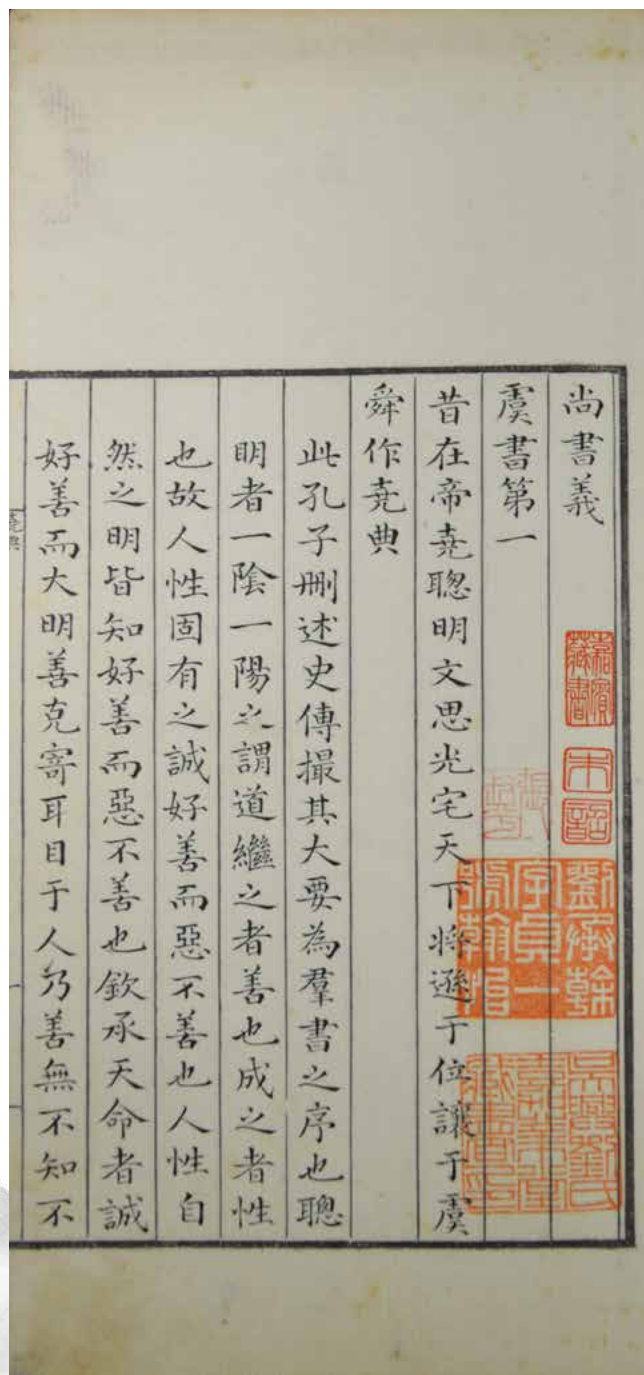 尚書義
虞書第一
昔在帝堯聰明文思光宅天下將遜于位讓于虞
舜作堯典
此孔子刪述史傳撮其大要為羣書之序也聰
明者一陰一陽之謂道繼之者善也成之者性
也故人性固有之誠好善而惡不善也人性自
然之明皆知好善而惡不善也欽承天命者誠
好善而大明善克寄耳目于人乃善無不知不
堯典
劉承幹
字貞一
號翰怡
吳興劉氏
嘉業堂
藏書印